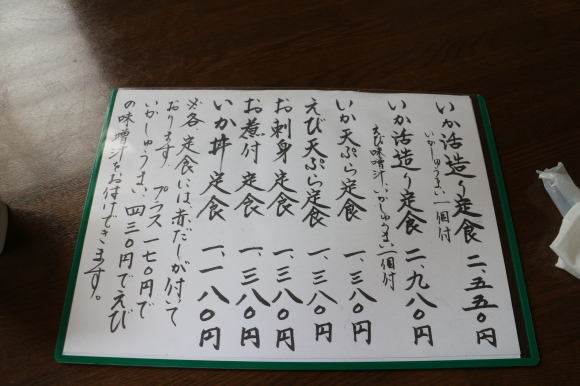 いか活造り定食 二、五五〇円
いかしゅうまい一個付
いか活造り定食 二、九八〇円
えび味噌汁、いかしゅうまい一個付
いか天ぷら定食 一、三八〇円
えび天ぷら定食 一、三八〇円
お刺身定食 一、三八〇円
お煮付定食 一、三八〇円
いか丼定食 一、一八〇円
※各定食には、赤だしが付いて
おります。プラス一七〇円で
いかしゅうまい、四三〇円でえび
の味噌汁をお付けできます。